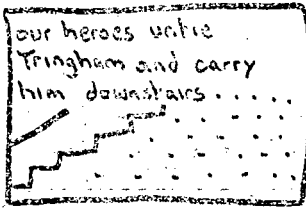 our heroes untie
Tringham and carry
him downstairs.....